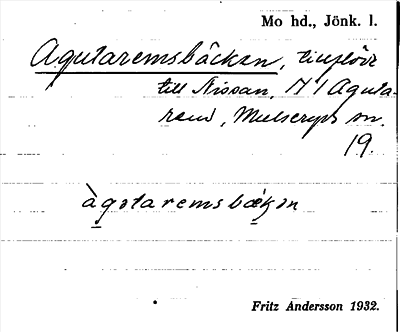 Mo hd., Jönk. l.
Agutaremsbäcken, tillflöde
till Nissan, N 1 Aguta-
rem, Mulseryds sn.
19.
àgotaremsbækən
Fritz Andersson 1932.